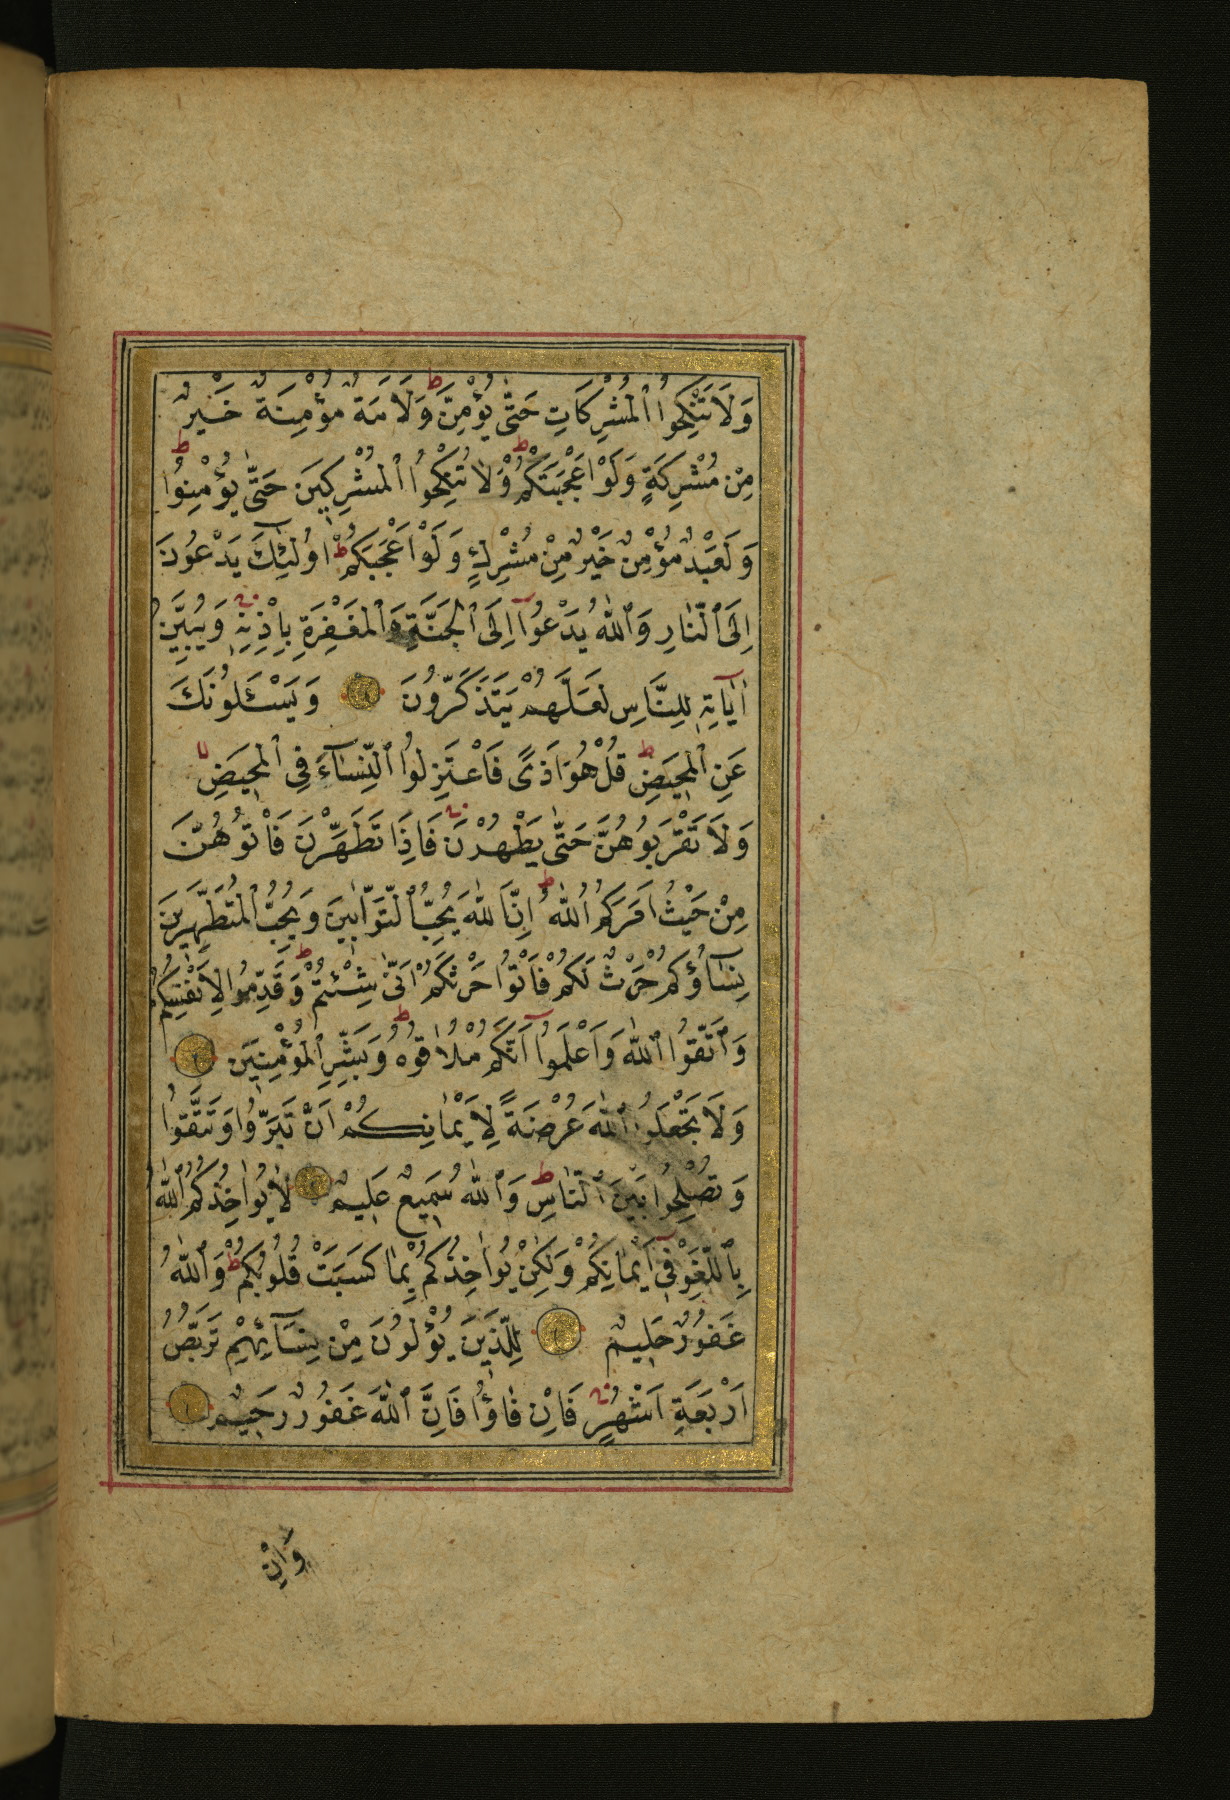 وَلَا تَنْكِحُوا ٱلْمُشْرِكَاتِ حَتّٰى يُؤْمِنَّ ط وَلَاَمَةٌ مُؤْمِنَةٌ خَيْرٌ
مِنْ مُشْرِكَةٍ وَلَوْ اَعْجَبَتْكُمْ ط وَلَا تُنْكِحُوا ٱلْمُشْرِكِينَ حَتّٰى يُؤْمِنُوا ط
وَلَعَبْدٌ مُؤْمِنٌ خَيْرٌ مِنْ مُشْرِكٍ وَلَوْ اَعْجَبَكُمْ ط اُولٰٓئِكَ يَدْعُونَ
اِلَى ٱلنَّارِ وَٱللّٰهُ يَدْعُوٓا اِلَى ٱلْجَنَّةِ وَٱلْمَغْفِرَةِ بِاِذْنِهٖ وَيُبَيِّنُ
اٰيَاتِهٖ لِلنَّاسِ لَعَلَّهُمْ يَتَذَكَّرُونَ وَيَسْـَٔلُونَكَ
عَنِ ٱلْمَحِيضِ ط قُلْ هُوَ اَذًى فَاعْتَزِلُوا ٱلنِّسَآءَ فِى ٱلْمَحِيضِ لا
وَلَا تَقْرَبُوهُنَّ حَتّٰى يَطْهُرْنَ فَاِذَا تَطَهَّرْنَ فَاْتُوهُنَّ
مِنْ حَيْثُ اَمَرَكُمُ ٱللّٰهُ ط اِنَّ ٱللّٰهَ يُحِبُّ ٱلتَّوَّابِينَ وَيُحِبُّ ٱلْمُتَطَهِّرِينَ
نِسَآؤُكُمْ حَرْثٌ لَكُمْ فَاْتُوا حَرْثَكُمْ اَنّٰى شِئْتُمْ ط وَقَدِّمُوا لِاَنْفُسِكُمْ
وَٱتَّقُوا ٱللّٰهَ وَاَعْلَمُوٓا اَنَّكُمْ مُلَاقُوهُ ط وَبَشِّرِ ٱلْمُؤْمِنِينَ
وَلَا تَجْعَلُوا ٱللّٰهَ عُرْضَةً لِاَيْمَانِكُمْ اَنْ تَبَرُّوا وَتَتَّقُوا
وَتُصْلِحُوا بَيْنَ ٱلنَّاسِ ط وَٱللّٰهُ سَمِيعٌ عَلِيمٌ لَا يُؤَاخِذُكُمُ ٱللّٰهُ
بِٱللَّغْوِ فِىٓ اَيْمَانِكُمْ وَلٰكِنْ يُؤَاخِذُكُمْ بِمَا كَسَبَتْ قُلُوبُكُمْ ط وَٱللّٰهُ
غَفُورٌ حَلِيمٌ لِلَّذِينَ يُؤْلُونَ مِنْ نِسَآئِهِمْ تَرَبُّصُ
اَرْبَعَةِ اَشْهُرٍ فَاِنْ فَاؤُا فَاِنَّ ٱللّٰهَ غَفُورٌ رَحِيمٌ
وَاِنْ